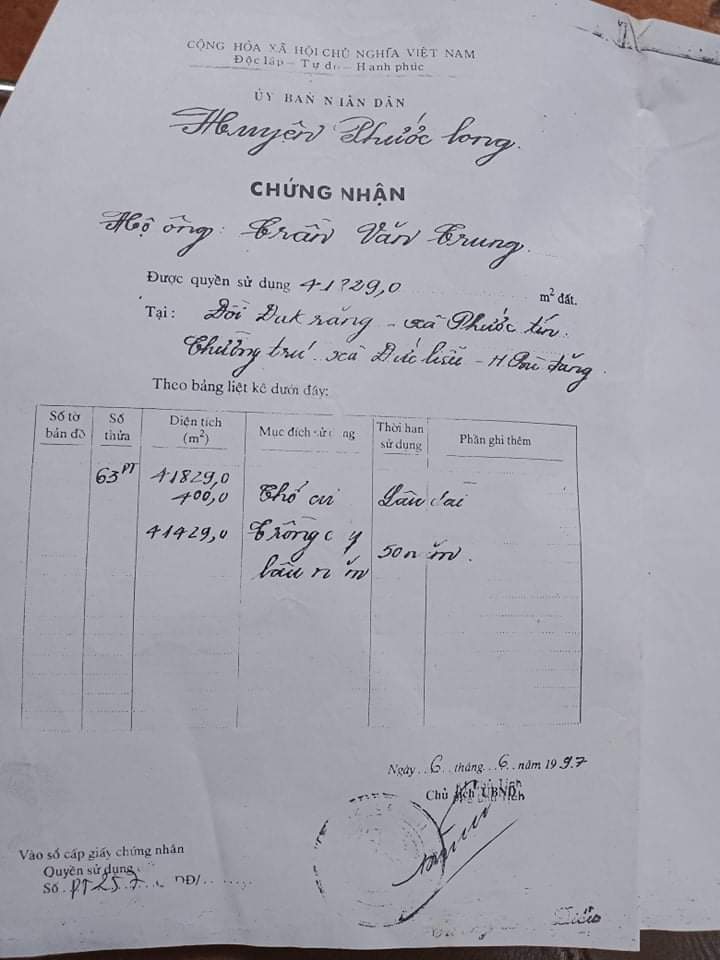 CỘNG HÒA XÃ HỘI CHỦ NGHĨA VIỆT NAM
Độc lập - Tự do - Hạnh phúc
ỦY BAN NHÂN DÂN
Huyện Phước Long.
CHỨNG NHẬN
Hộ ông: Trần Văn Trung.
Được quyền sử dụng 41829,0 m² đất.
Tại: Đồi Dak răng - xã Phước tín.
Thường trú xã Đức liễu - H Bù đăng.
Theo bảng liệt kê dưới đây:
Số tờ bản đồ Số thửa Diện tích (m²) Mục đích sử dụng Thời hạn sử dụng Phần ghi thêm
63 PT 41829,0
400,0 Thổ cư Lâu dài
41429,0 Trồng cây 50 năm.
lâu năm
Ngày 6 tháng 6 năm 1997
Chủ tịch UBND
Vào sổ cấp giấy chứng nhận
Quyền sử dụng
Số PT257 QĐ/